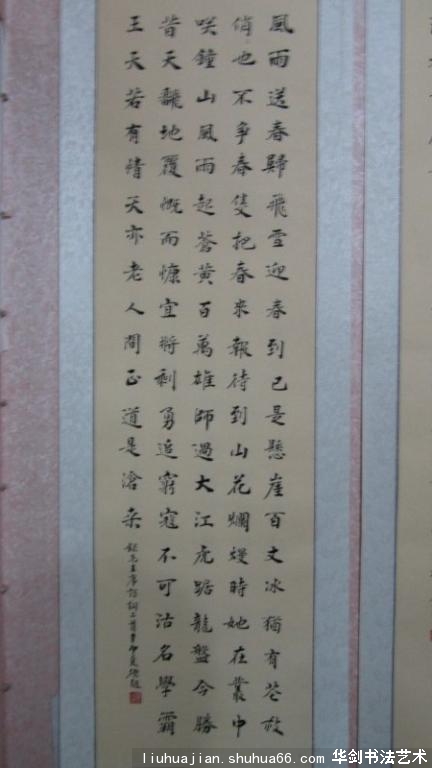 風雨送春歸飛雪迎春到已是懸崖百丈冰猶有花枝
俏也不爭春隻把春來報待到山花爛熳時她在叢中
咲鐘山風雨起蒼黃百萬雄師過大江虎踞龍盤今勝
昔天飜地覆慨而慷宜將剩勇追窮寇不可沽名學霸
王天若有情天亦老人間正道是滄桑
錄毛主席詩詞二首
liuhuajian.shuhua66.com 华剑书法艺术